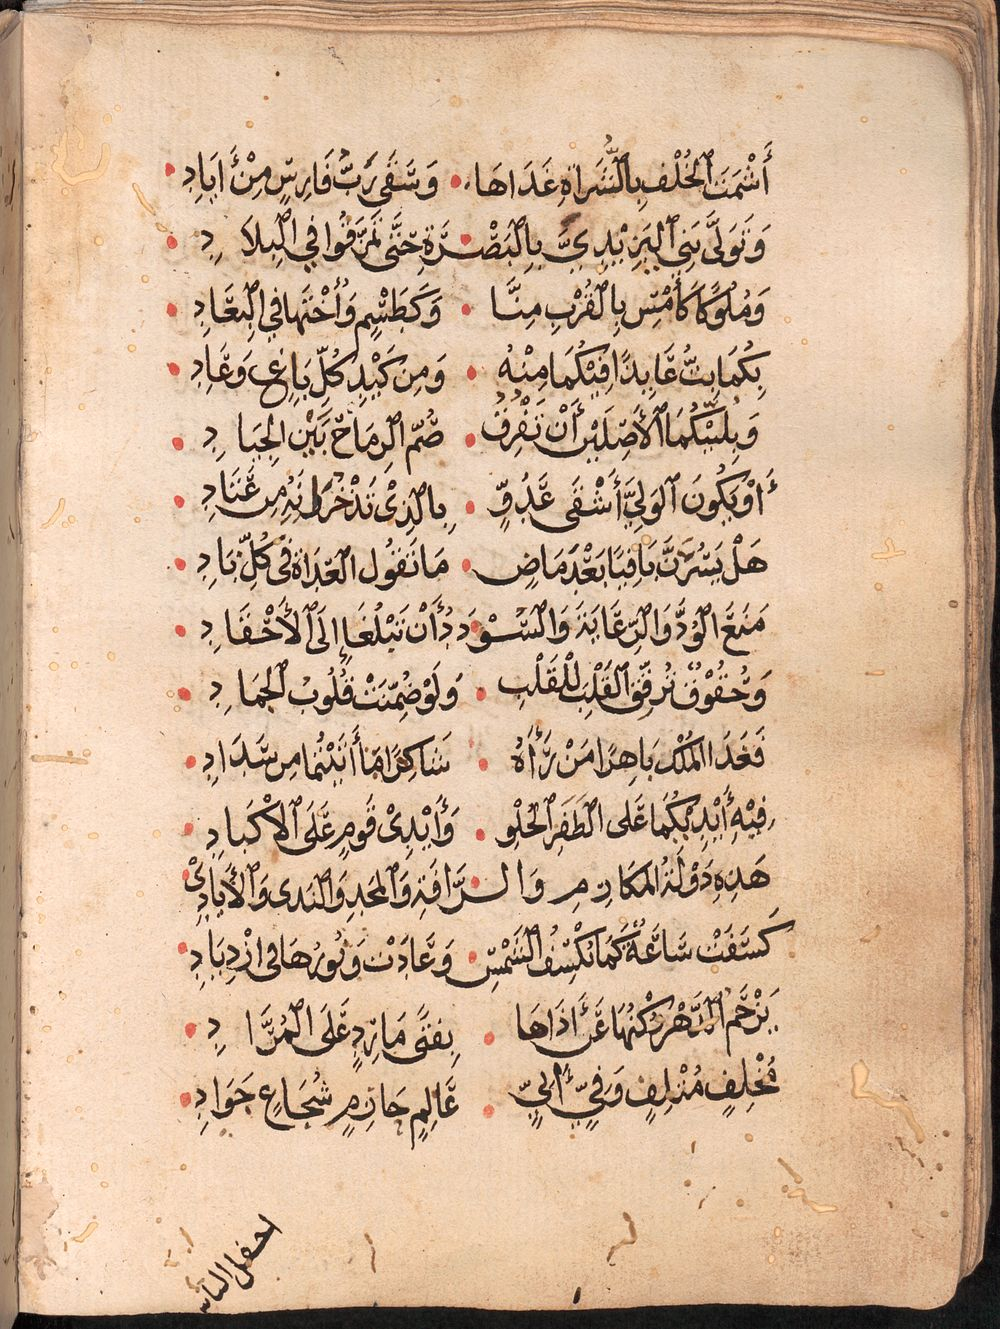 أَشْمَتَ ٱلْخُلْفُ بِالشَّرَاةِ عَدَاهَا وَسَقَى رَبَّ فَارِسٍ مِنْ أَيَادِ
وَتَوَلَّى بَنِي ٱلْيَزِيْدِيِّ بِالْبَصْرَةِ حَتَّى تَمَزَّقُوا فِي الْبِلاَدِ
وَمُلُوْكًا كَأَمْسِ بِالْقُرْبِ مِنَّا وَكَطَسْمٍ وَأُخْتَهَا فِي الْبِعَادِ
بِكُمَا بِتُّ عَايِدًا فِيْكُمَا مِنْهُ وَمِنْ كَيْدِ كُلِّ بَاغٍ وَعَادِ
وَبِلُبَّيْكُمَا ٱلْأَصِيْلَيْنِ أَنْ تَفْرُقَ صُمُّ الرِّمَاحِ بَيْنَ الْجِيَادِ
أَوْ يَكُونَ ٱلْوَلِيُّ أَشْقَى عَدُوٍّ بِالَّذِيْ تَذْخَرَانِهِ مِنْ عَتَادِ
هَلْ يَسُرَّنَّ بَاقِيًا بَعْدَ مَاضٍ مَا تَقُولُ الْعُدَاةُ فِي كُلِّ نَادِ
مَنَعَ ٱلْوُدُّ وَالرِّعَايَةُ وَالسُّوْدَدُ أَنْ تَبْلُغَا إِلَى ٱلْأَحْقَادِ
وَحُقُوْقٌ تُرَقِّقُ الْقَلْبَ لِلْقَلْبِ وَلَوْ ضُمِّنَتْ قُلُوبَ الْجَمَادِ
فَغَدَا الْمُلْكُ بَاهِرًا مَنْ رَأَهُ شَاكِرًا مَا أَتَيْتُمَا مِنْ سَدَادِ
فِيْهِ أَيْدِيْكُمَا عَلَى الظَّفَرِ ٱلْحُلْوِ وَأَيْدِيْ قَوْمٍ عَلَى ٱلْأَكْبَادِ
هَذِهِ دَوْلَةُ الْمَكَارِمِ وَالرَّافَةِ وَالْمَجْدِ وَالنَّدَى وَالْأَيَادِيْ
كَسَفَتْ سَاعَةً كَمَا تَكْسُفُ الشَّمْسُ وَعَادَتْ وَنُورُهَا فِي ازْدِيَادِ
يَزْحَمُ ٱلدَّهْرَ رُكْنُهَا عَنْ أَذَاهَا بِفَتًى مَارِدٍ عَلَى الْمُرَّادِ
مُخْلِفٍ مُتْلِفٍ وَفِيٍّ أَبِيٍّ عَالِمٍ حَازِمٍ شُجَاعٍ جَوَادِ